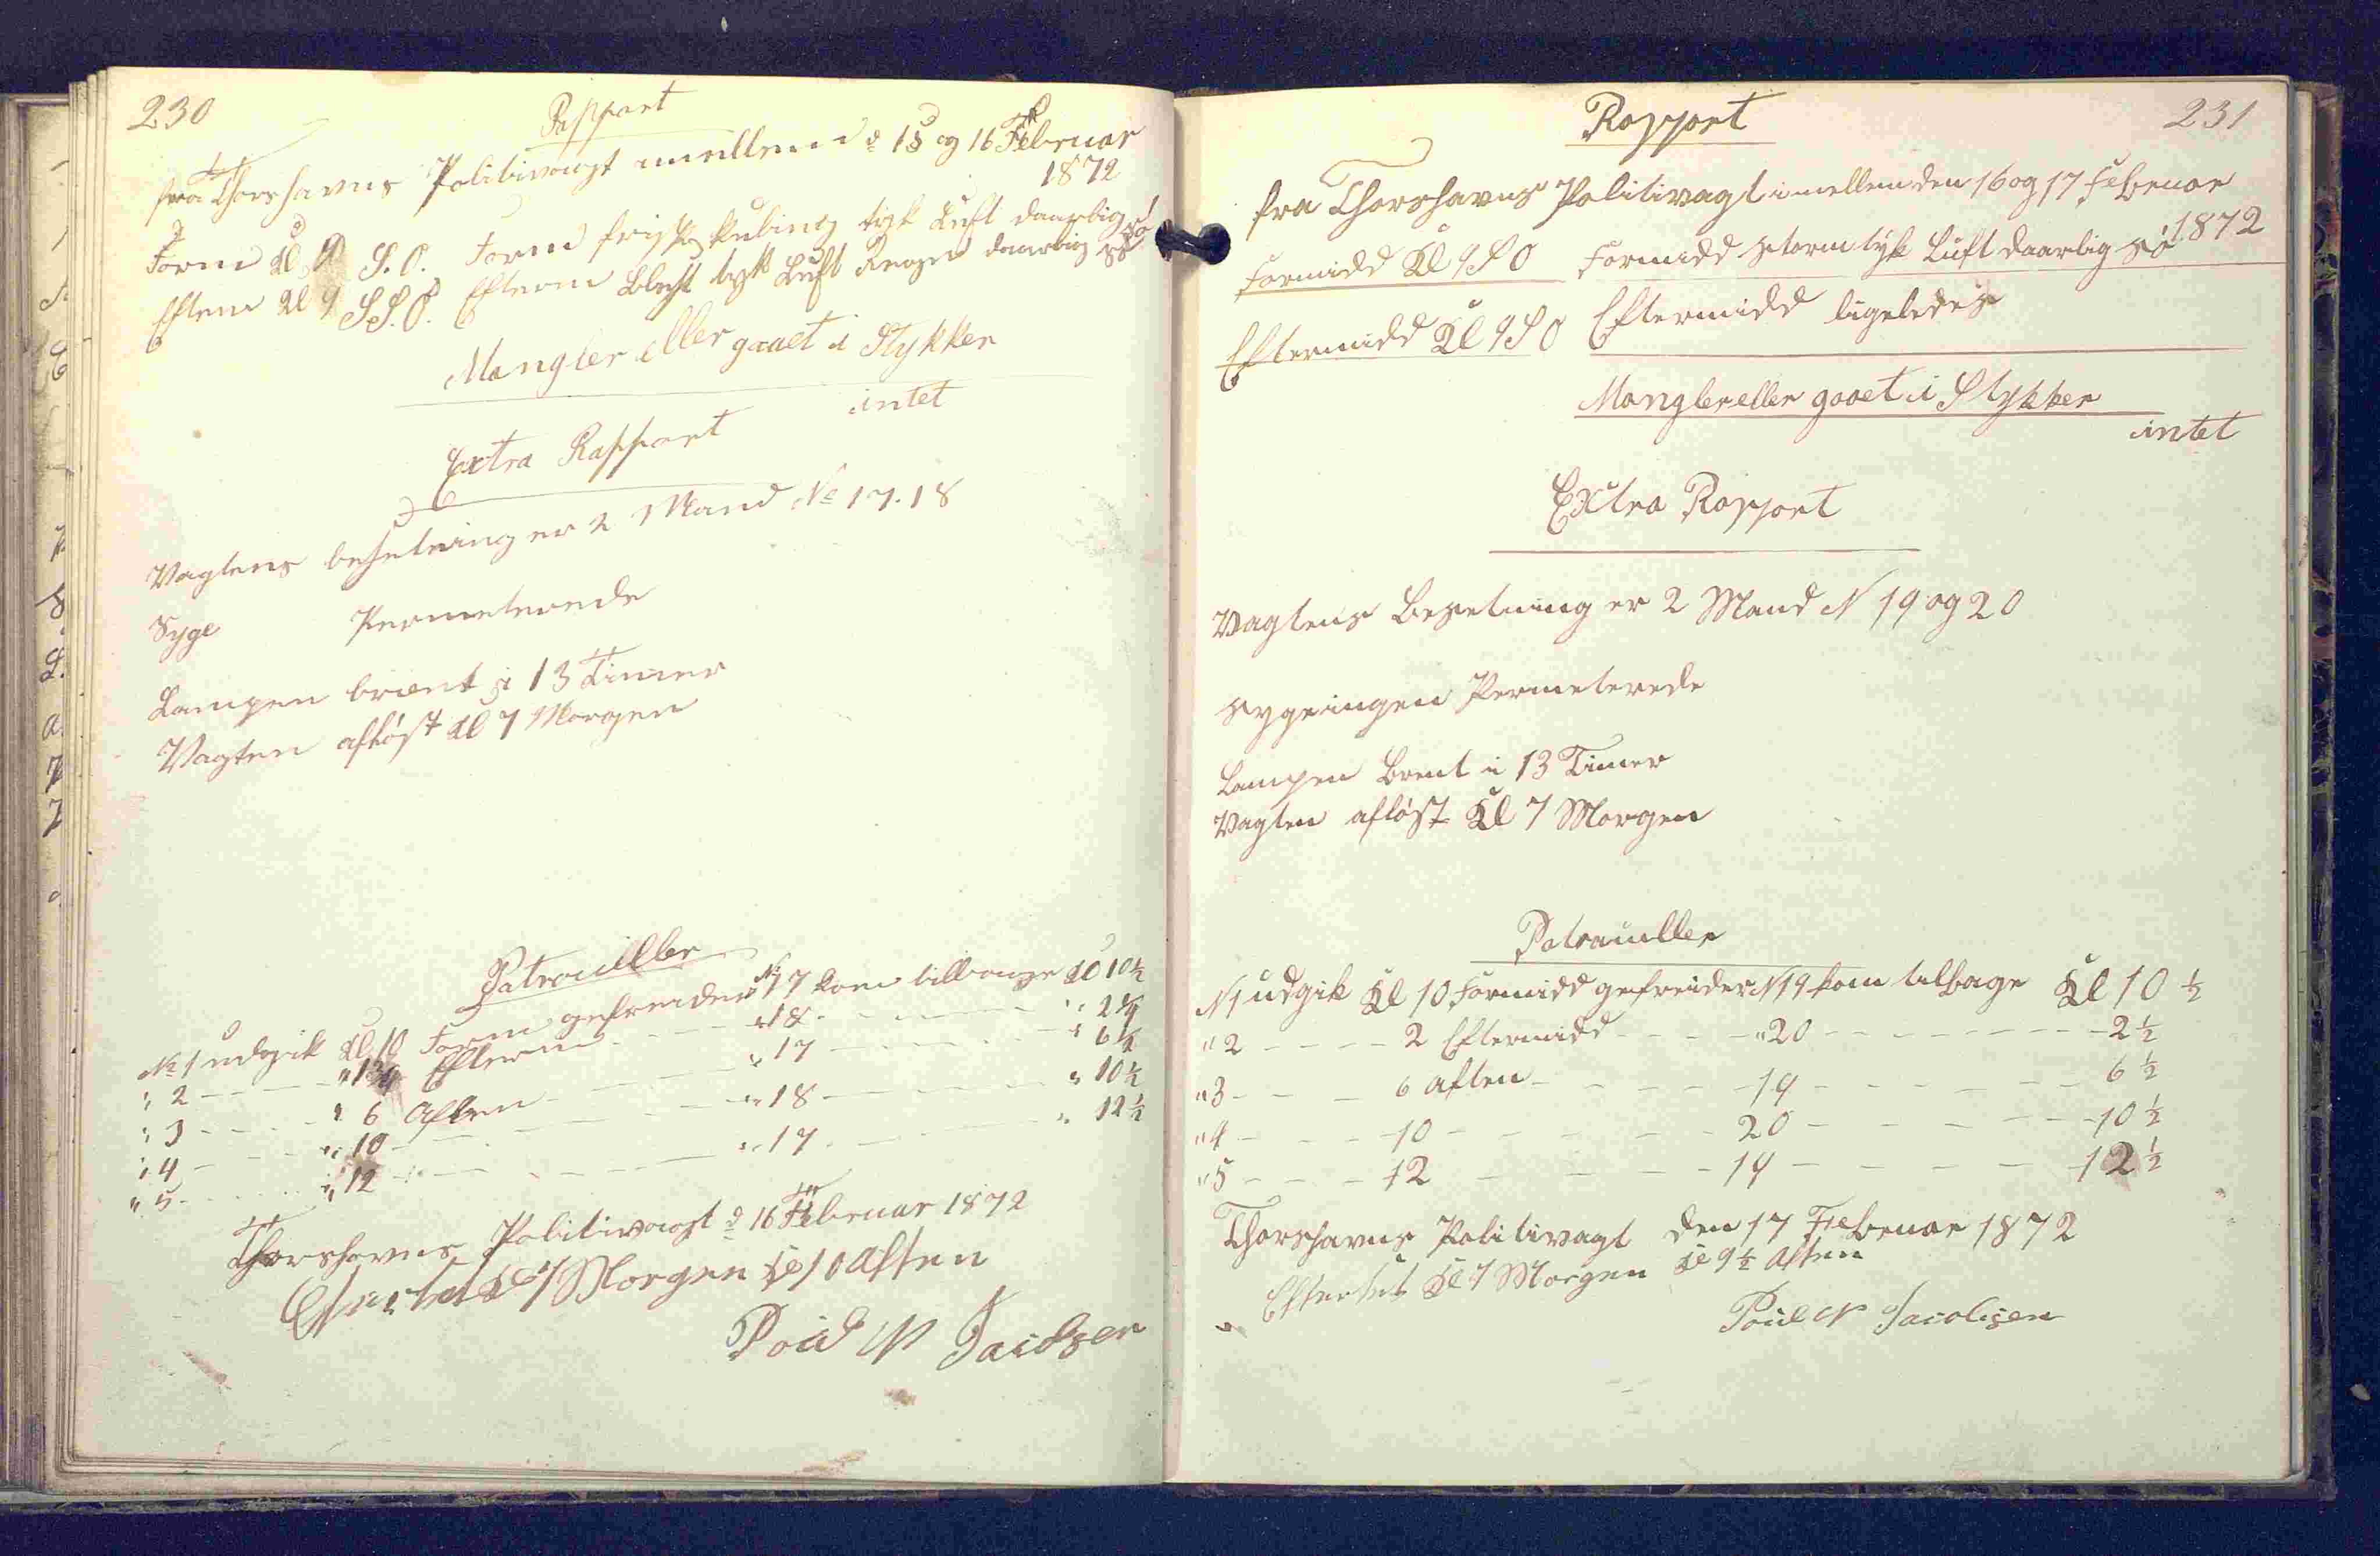 230
Rapport
fra Thorshavns Politivagt imellem d 15 og 16 Februar
1872
Form Kl 9 S.O. Form frisk kuling tyk Luft daarlig sö
Efterm Kl 9 S.S.O. Efterm Blæst tyk Luft Regn daarlig sö
Mangler eller gaaet i Stykker
intet
Extra Rapport
Vagtens besetning er 2 Mand No 17.18
Syge Permeterende
Lampen brænt i 13 Timer
Vagten aflöst Kl 7 Morgen
Patrouiller
No 1 udgik Kl 10 Form gefreider No 17 kom tilbage Kl 10½
" 2 - - - " Efterm - - - " 18 - - - " 2¼
" 3 - - - " 6 Aften - - - " 17 - - - " 6½
" 4 - - - " 10 - - - " 18 - - - " 10½
" 5 - - - " 12 - - - " 17 - - - " 12½
Thorshavns Politivagt d 16 Februar 1872
Efterset Kl 7 Morgen Kl 10 Aften
Poul N Jacobsen
Rapport
231
fra Thorshavns Politivagt imellem den 16 og 17 Februar
1872
Formidd Kl 9 S O Formidd storm tyk Luft daarlig sö
Eftermidd Kl 9 S O Eftermidd ligeledes
Mangler eller gaaet i Stykker
intet
Extra Rapport
Vagtens Besetning er 2 Mand N 19 og 20
syge ingen Permeterede
Lampen Brent i 13 Timer
Vagten aflöst Kl 7 Morgen
Patrouiller
N 1 udgik Kl 10 Formidd gefreider N 19 kom tilbage Kl 10 ½
" 2 - - - - 2 Eftermidd - - - " 20 - - - - - - - 2 ½
" 3 - - - 6 aften - - - - - 19 - - - - - - 6 ½
" 4 - - - - 10 - - - - - - 20 - - - - - - 10 ½
" 5 - - - - 12 - - - - 19 - - - - - 12 ½
Thorshavns Politivagt den 17 Februar 1872
Efterset Kl 7 Morgen Kl 9 ½ Aften
Poul N Jacobsen